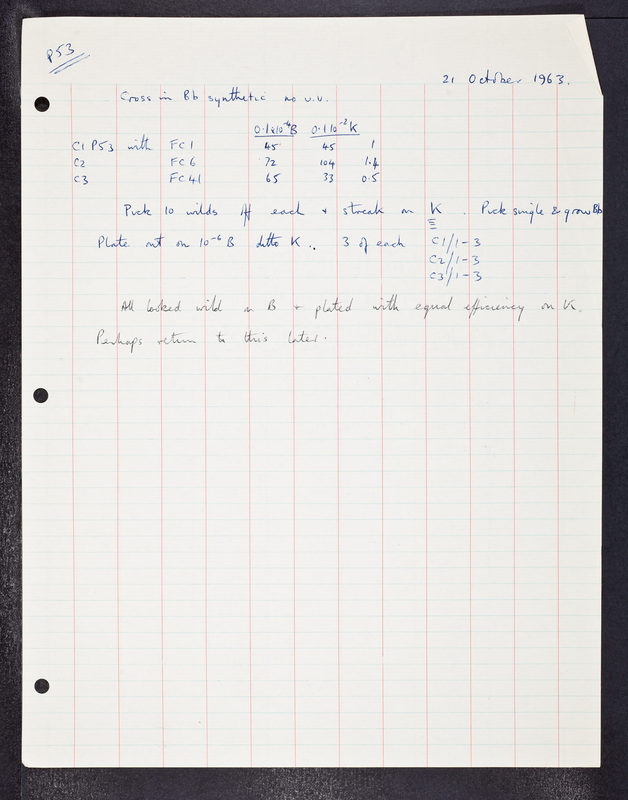 P53
21 October 1963.
Cross in Bb synthetic no u.v.
0.1 x 10⁻⁶B 0.1 10⁻² K
C1 P53 with FC1 45 45 1
C2 FC6 72 104 1.4
C3 FC41 65 33 0.5
Pick 10 wilds off each + streak on K. Pick single & grow Bb
Plate out on 10⁻⁶ B ditto K .. 3 of each C1/1-3
C2/1-3
C3/1-3
All looked wild on B + plated with equal efficiency on K.
Perhaps return to this later.